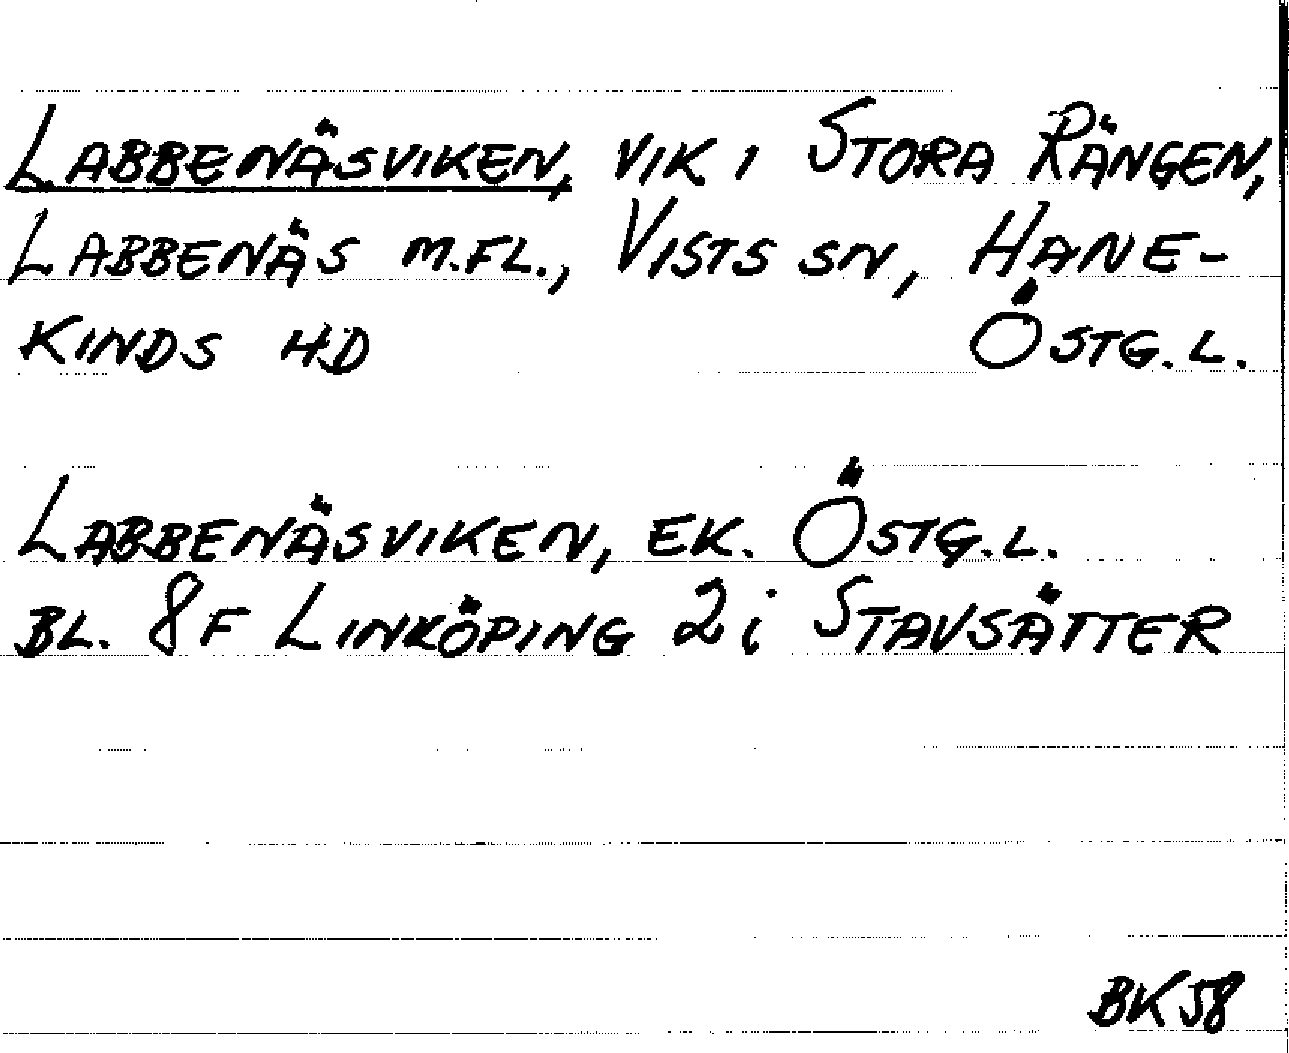 LABBENÄSVIKEN, VIK I STORA RÄNGEN,
LABBENÄS M.FL., VISTS SN, HANE-
KINDS HD ÖSTG.L.
LABBENÄSVIKEN, EK. ÖSTG.L.
BL. 8F LINKÖPING 2i STAVSÄTTER
BK 58